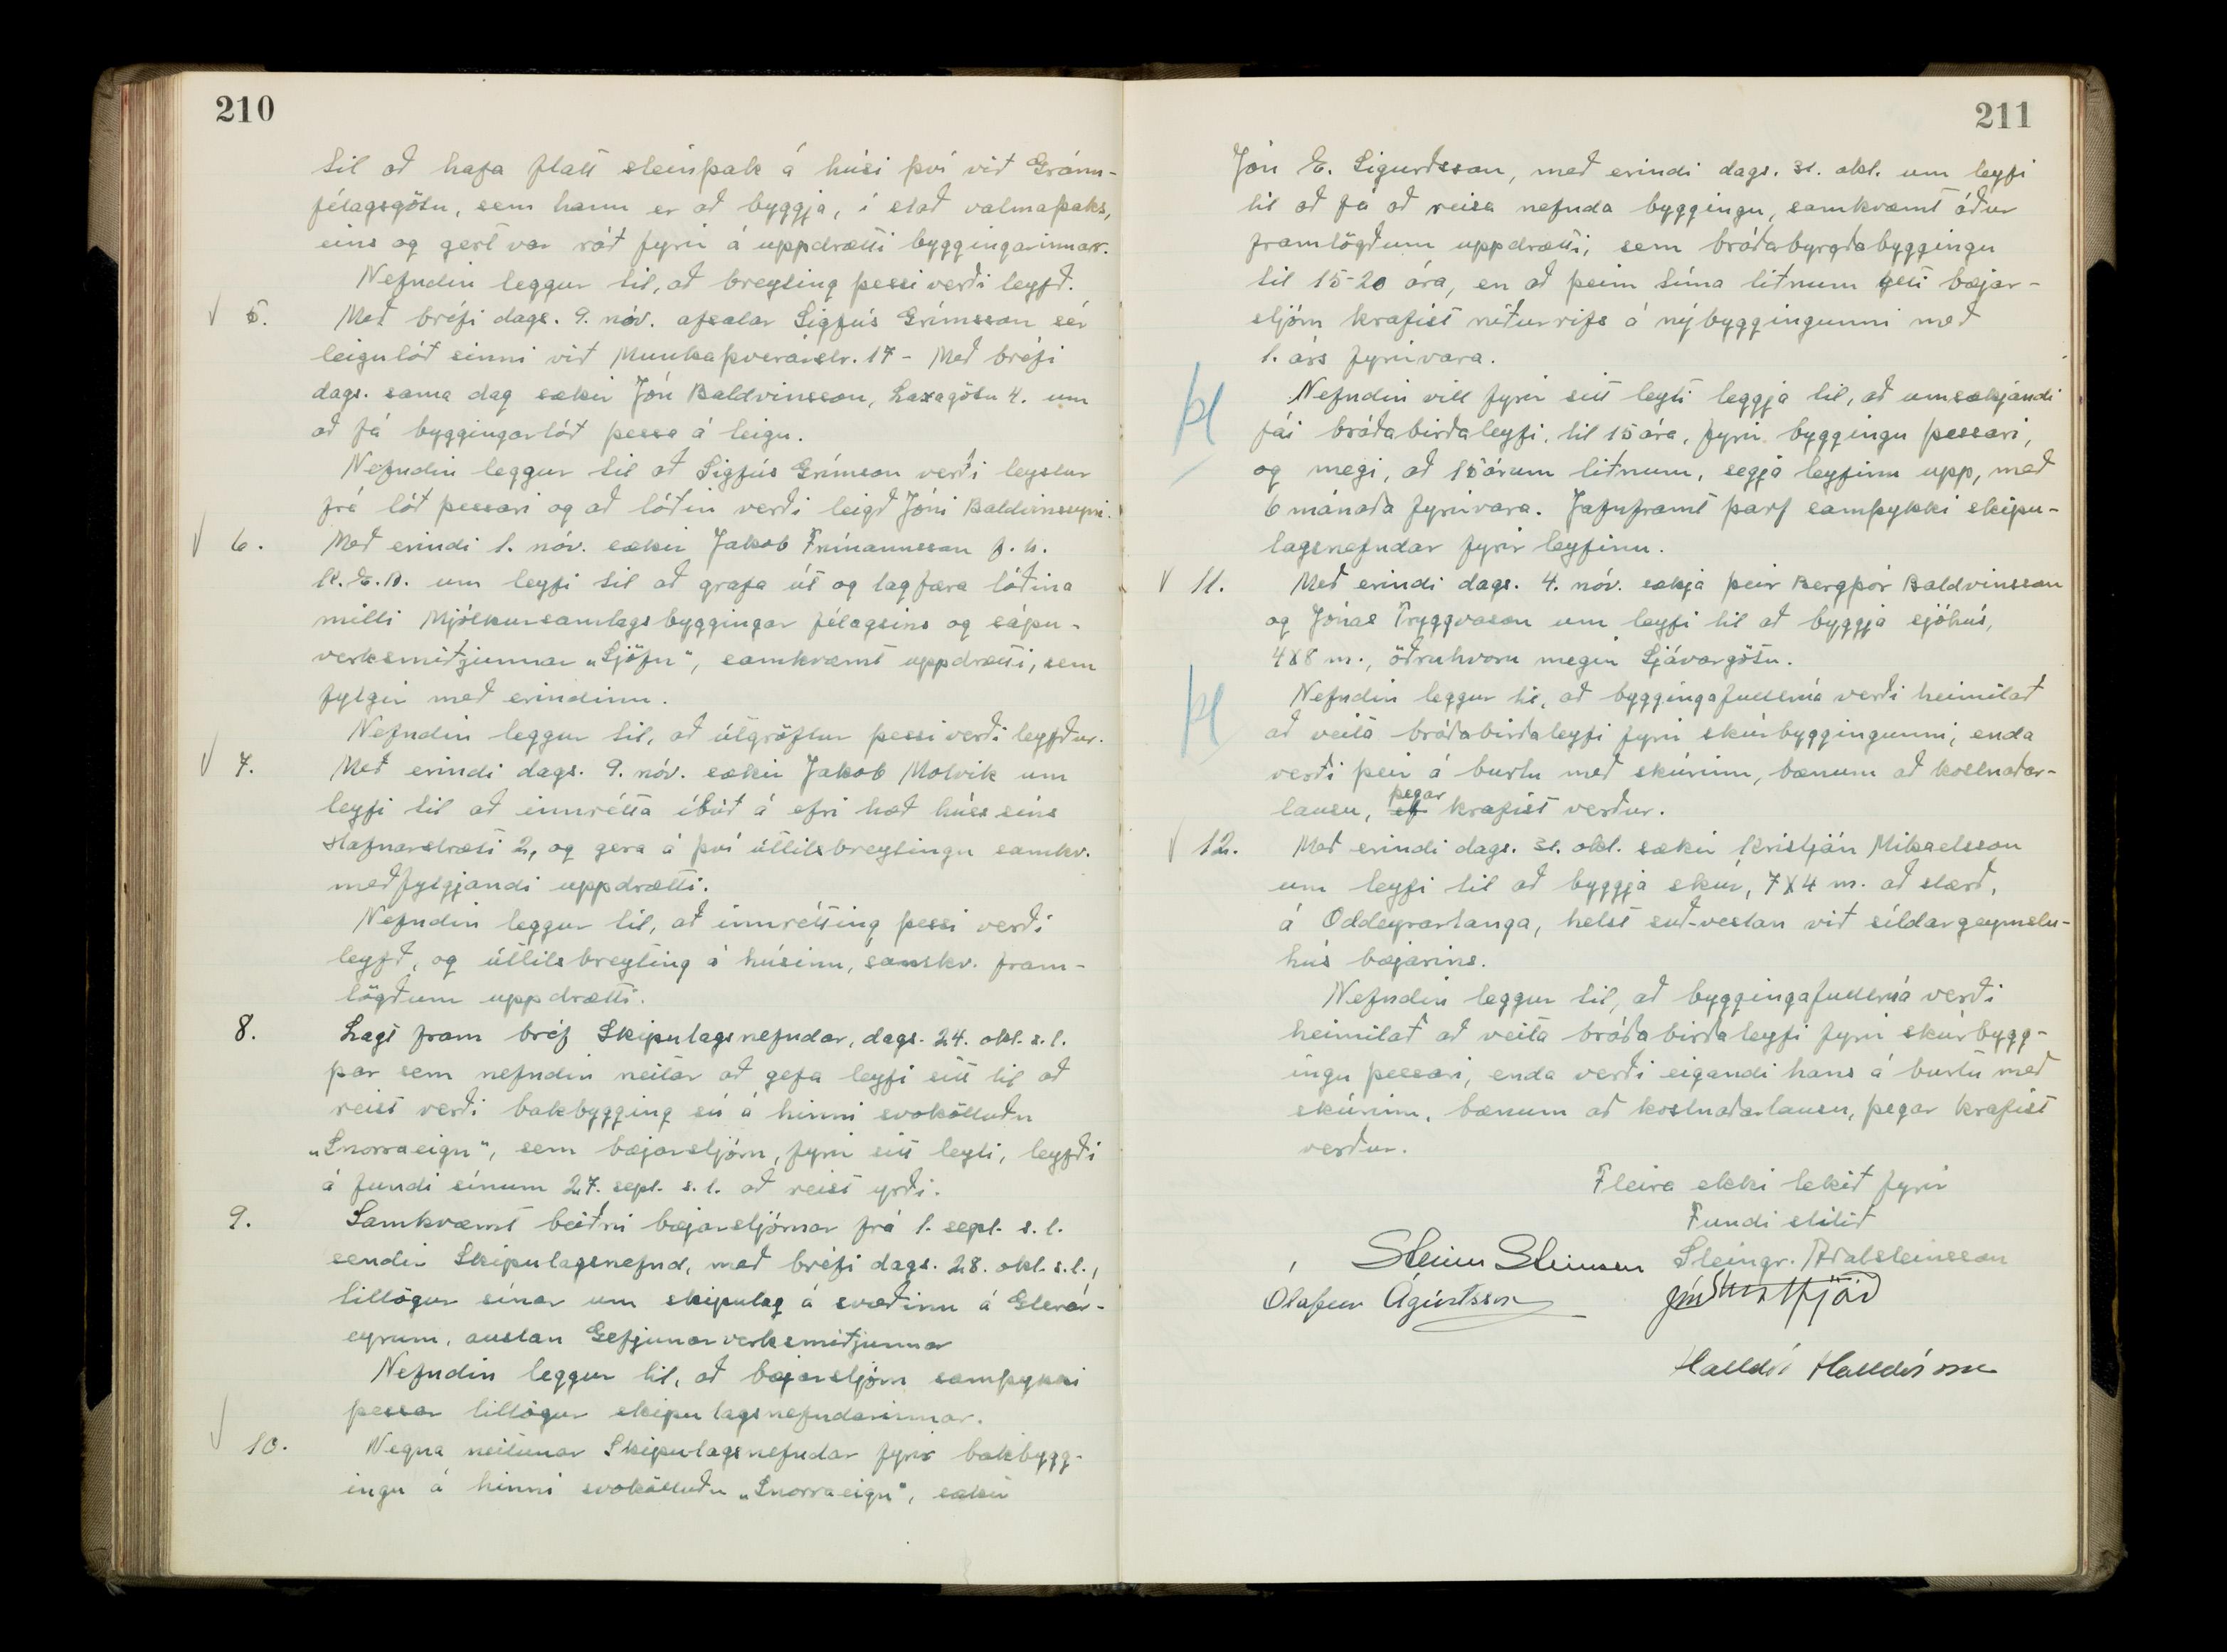 210
til að hafa flatt steinþak á húsi því við Gránu-
félagsgötu, sem hann er að byggja, í stað valmaþaks,
eins og gert var ráð fyrir á uppdrætti byggingarinnar.
Nefndin leggur til, að breyting þessi verði leyfð.
5. Með bréfi dags. 9. nóv. afsalar Sigfús Grímsson sér
leigulóð sinni við Munkaþverárstr. 17 - Með bréfi
dags. sama dag sækir Jón Baldvinsson, Laxagötu 4. um
að fá byggingarlóð þessa á leigu.
Nefndin leggur til að Sigfús Grímson verði leystur
frá lóð þessari og að lóðin verði leigð Jóni Baldvinssyni.
6. Með erindi 1. nóv. sækir Jakob Frímannsson f. h.
K.E.A. um leyfi til að grafa út og lagfæra lóðina
milli Mjólkursamlagsbyggingar félagsins og sápu-
verksmiðjunnar „Sjöfn", samkvæmt uppdrætti, sem
fylgir með erindinu.
Nefndin leggur til, að útgröftur þessi verði leyfður.
7. Með erindi dags. 9. nóv. sækir Jakob Molvik um
leyfi til að innrétta íbúð á efri hæð húss síns
Hafnarstræti 2, og gera á því útlitsbreytingu samkv.
meðfylgjandi uppdrætti.
Nefndin leggur til, að innrétting þessi verði
leyfð, og útlitsbreyting á húsinu, samkv. fram-
lögðum uppdrætti.
8. Lagt fram bréf Skipulagsnefndar, dags. 24. okt. s.l.
þar sem nefndin neitar að gefa leyfi sitt til að
reist verði bakbygging sú á hinni svokölluðu
„Snorraeign", sem bæjarstjórn, fyrir sitt leyti, leyfði
á fundi sínum 27. sept. s.l. að reist yrði.
9. Samkvæmt beiðni bæjarstjórnar frá 1. sept. s.l.
sendir Skipulagsnefnd, með bréfi dags. 28. okt. s.l.,
tillögur sínar um skipulag á svæðinu á Glerár-
eyrum, austan Gefjunarverksmiðjunnar
Nefndin leggur til, að bæjarstjórn samþykki
þessar tillögur skipulagsnefndarinnar.
10. Vegna neitunar Skipulagsnefndar fyrir bakbygg-
ingu á hinni svokölluðu „Snorraeign", sækir
211
Jón E. Sigurðsson, með erindi dags. 31. okt. um leyfi
til að fá að reisa nefnda byggingu, samkvæmt áður
framlögðum uppdrætti, sem bráðabyrgðabyggingu
til 15-20 ára, en að þeim tíma liðnum geti bæjar-
stjórn krafist niðurrifs á nýbyggingunni með
1. árs fyrirvara.
Nefndin vill fyrir sitt leyti leggja til, að umsækjandi
fái bráðabirðaleyfi, til 15 ára, fyrir byggingu þessari,
og megi, að 15 árum liðnum, segja leyfinu upp, með
6 mánaða fyrirvara. Jafnframt þarf samþykki skipu-
lagsnefndar fyrir leyfinu.
11. Með erindi dags. 4. nóv. sækja þeir Bergþór Baldvinsson
og Jónas Tryggvason um leyfi til að byggja sjóhús,
4x8 m., öðruhvoru megin Sjávargötu.
Nefndin leggur til, að byggingafulltrúa verði heimilað
að veita bráðabirðaleyfi fyrir skúrbyggingunni, enda
verði þeir á burtu með skúrinn, bænum að kostnaðar-
lausu, ef þegar krafist verður.
12. Með erindi dags. 31. okt. sækir Kristján Mikaelsson
um leyfi til að byggja skúr, 7x4 m. að stærð,
á Oddeyrartanga, helst suð-vestan við síldargeymslu-
hús bæjarins.
Nefndin leggur til, að byggingafulltrúa verði
heimilað að veita bráðabirðaleyfi fyrir skúrbygg-
ingu þessari, enda verði eigandi hans á burtu með
skúrinn, bænum að kostnaðarlausu, þegar krafist
verður.
Fleira ekki tekið fyrir
Fundi slitið
Steinn Steinsen Steingr. Aðalsteinsson
Ólafur Ágústsson
Halldór Halldórsson